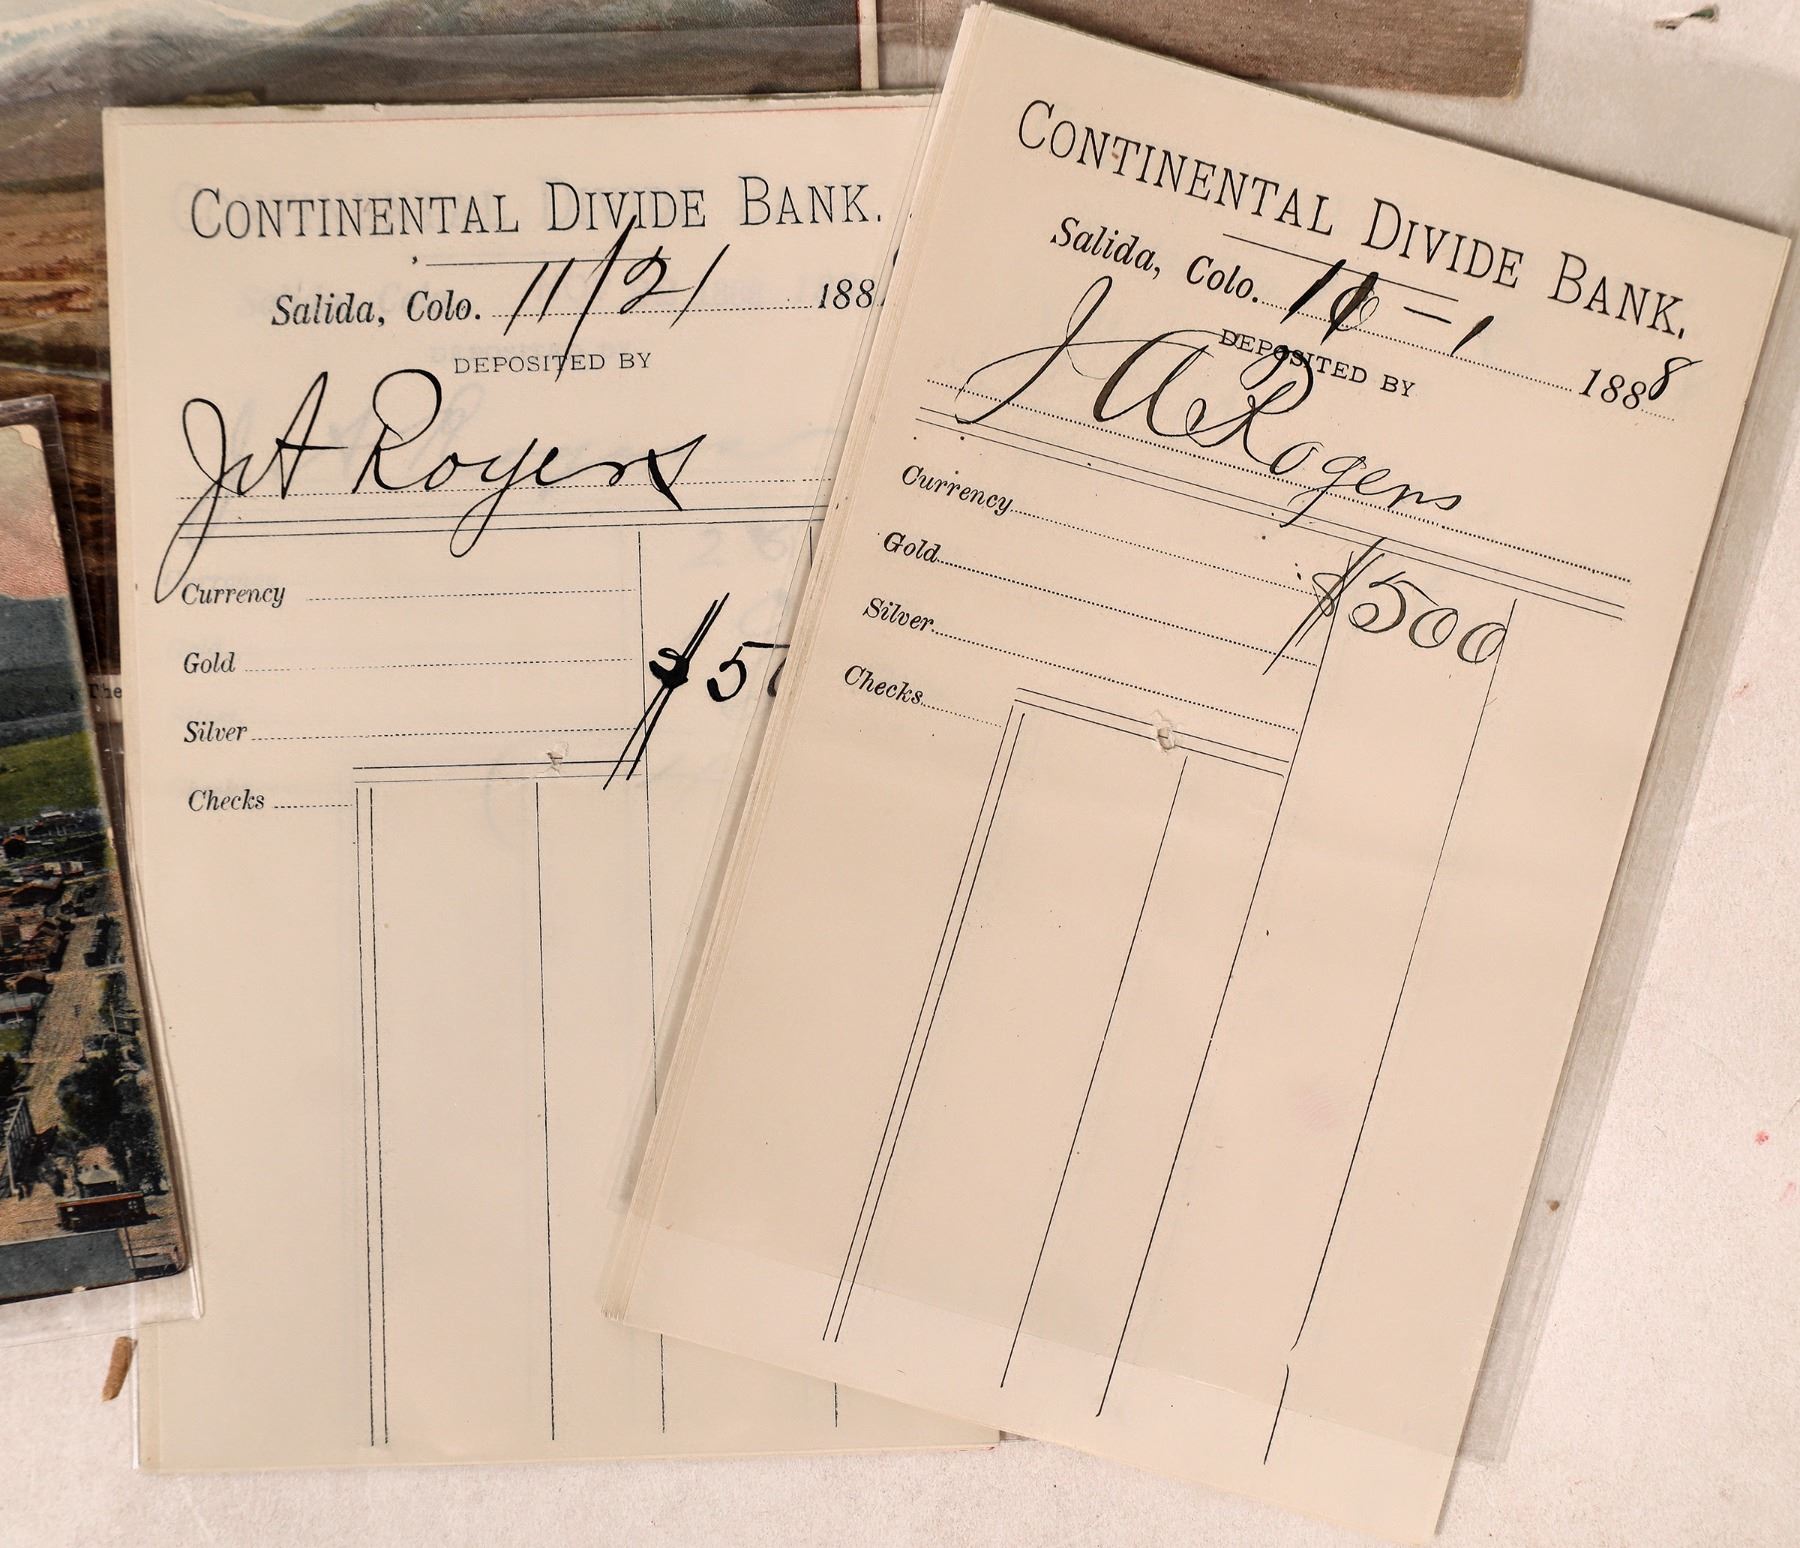 CONTINENTAL DIVIDE BANK.
Salida, Colo. 11/21 188
DEPOSITED BY
J A Rogers
Currency
Gold
$5
Silver
Checks
CONTINENTAL DIVIDE BANK.
Salida, Colo. - 1 1888
DEPOSITED BY
J A Rogers
Currency
$500
Gold
Silver
Checks
The